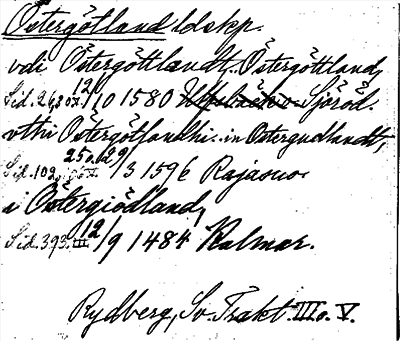 Östergötland ldskp.
vdi Östergöttlandt.. Östergöttland,
Sid. 263 12/10 1580 Sjöröd.
Östergötland in Ostergudlandt,
Sid. 102, 25 o. 29/3 1596
i Östergiödland,
Sid. 393. III 12/9 1484 Kalmar.
Rydberg, Sv. Trakt. III o. V.